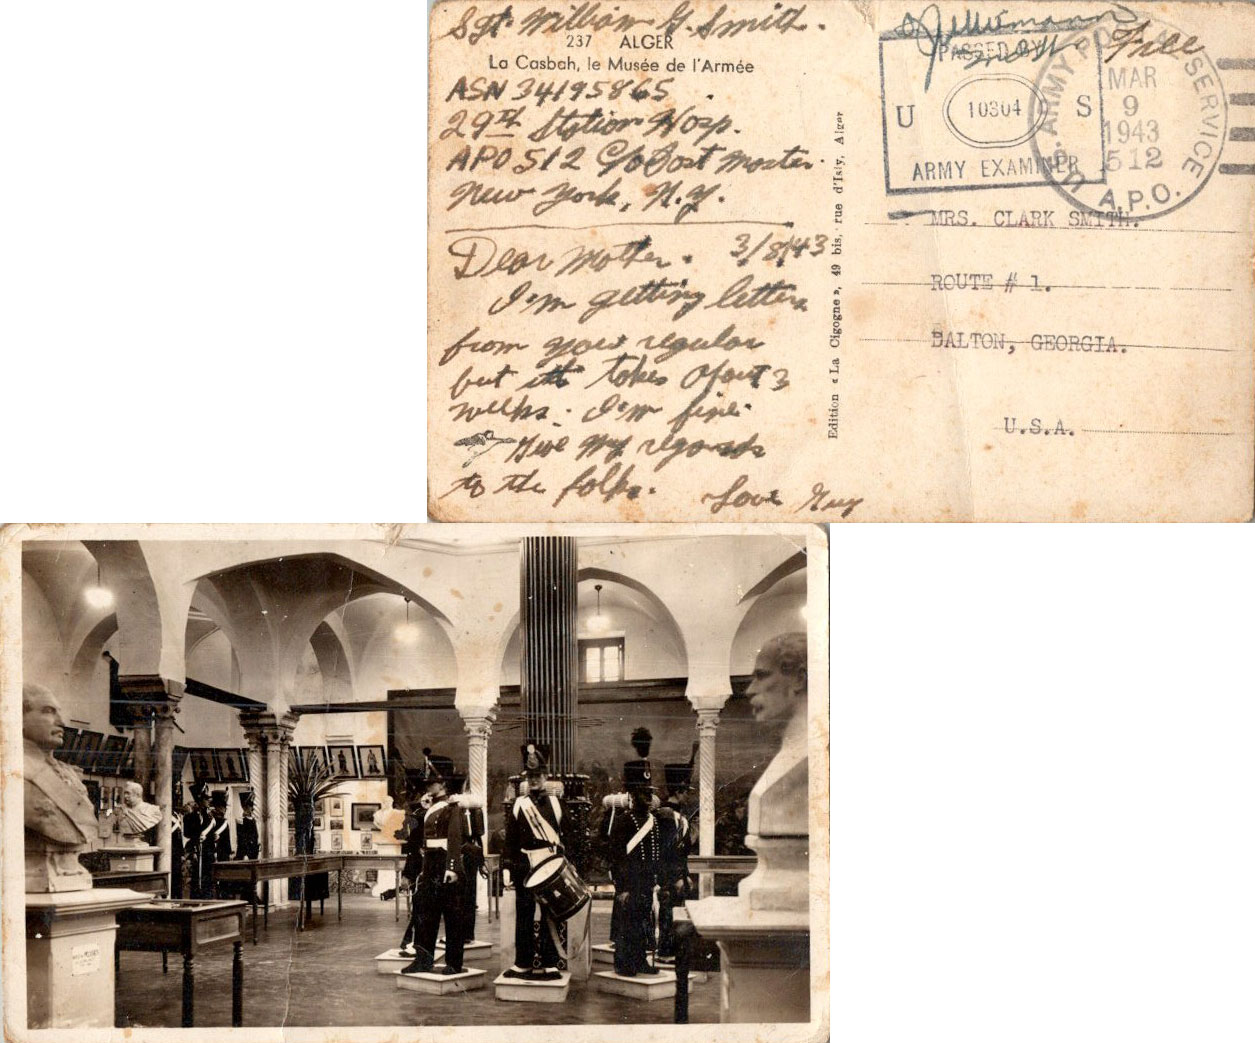 Sgt. William G. Smith.
237 ALGER
La Casbah, le Musée de l'Armée
ASN 34195865.
29th Station Hosp.
APO 512 C/o Post Master
New York, N.Y.
Dear Mother. 3/8/43
I'm getting letters
from you regular
but it takes about 3
weeks. I'm fine.
Give my regards
to the folks.
Love Guy
Edition « La Cigogne », 49 bis, rue d'Isly, Alger
Free
PASSED BY
U 10304 S
ARMY EXAMINER
U.S. ARMY POSTAL SERVICE
MAR
9
1943
512
A.P.O.
MRS. CLARK SMITH.
ROUTE # 1.
DALTON, GEORGIA.
U.S.A.